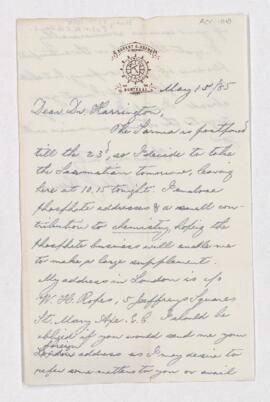 MONTREAL
May 15/85
Dear Dr. Harrington,
The Sarnia is postponed
till the 23d, so I decide to take
the Sarmatian tomorrow, leaving
here at 10.15 tonight. I enclose
Phosphate addresses & a small con-
tribution to chemistry, hoping the
Phosphate business will enable me
to make a large supplement.
My address in London is c/o
W. H. Ropes, 5 Jeffreys Square
St. Mary Axe E.C. I should be
obliged if you would send me your
foreign
London address as I may desire to
refer some matters to you or avail